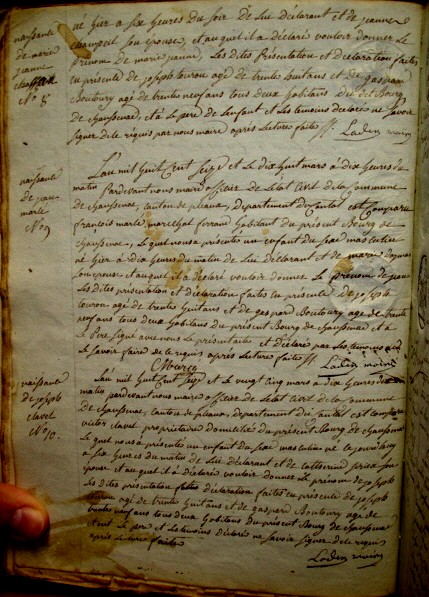 naissance
de marie
jeanne
No 8
né hier a six heures du soir de lui déclarant et de jeanne
son epouse, et auquel il a déclaré vouloir donner le
prénom de marie jeanne, les dites présentation et déclaration faites
en présence de joseph touron agé de trente huit ans et de gaspard
Boutoury agé de trente neuf ans tous deux habitans du dit Bourg
de chaussenac, et a le pere de l'enfant et les temoins déclaré ne savoir
signer de le requis par nous maire après lectures faites ff.
naissance
de jean
marle
No 9
L'an mil huit cent seize et le dix huit mars à dix heures du
matin pardevant nous maire officier de l'état civil de la commune
de chaussenac, canton de pleaux, departement du cantal est comparu
francois marle marechal ferrant habitant du présent Bourg de
chaussenac, lequel nous a présenté un enfant du sexe masculin
né hier à dix heures du matin de lui déclarant et de marie
son epouse et auquel il a déclaré vouloir donner le prenom de jean
les dites présentation et déclaration faites en présence de joseph
touron agé de trente huit ans et de gaspard Boutoury agé de trente
neuf ans tous deux habitans du présent Bourg de chaussenac et a
le Pere signé avec nous le présent acte et déclaré par les temoins
le savoir faire de le requis après lecture faites ff.
naissance
de joseph
clavel
No 10
L'an mil huit cent seize et le vingt cinq mars à dix heures du
matin pardevant nous maire officier de l'état civil de la commune
de chaussenac, canton de pleaux, departement du cantal est comparu
victor clavel propriétaire domicilié du présent Bourg de chaussenac
lequel nous a présenté un enfant du sexe masculin né
à six heures du matin de lui déclarant et de catherine son
épouse et auquel il a déclaré vouloir donner le prénom de joseph
les dites présentation et déclaration faites en présence de joseph
touron agé de trente huit ans et de gaspard Boutoury agé de
trente neuf ans tous deux habitans du présent Bourg de chaussenac
et ont le pere et les temoins déclaré ne savoir signer de le requis
après lecture faites